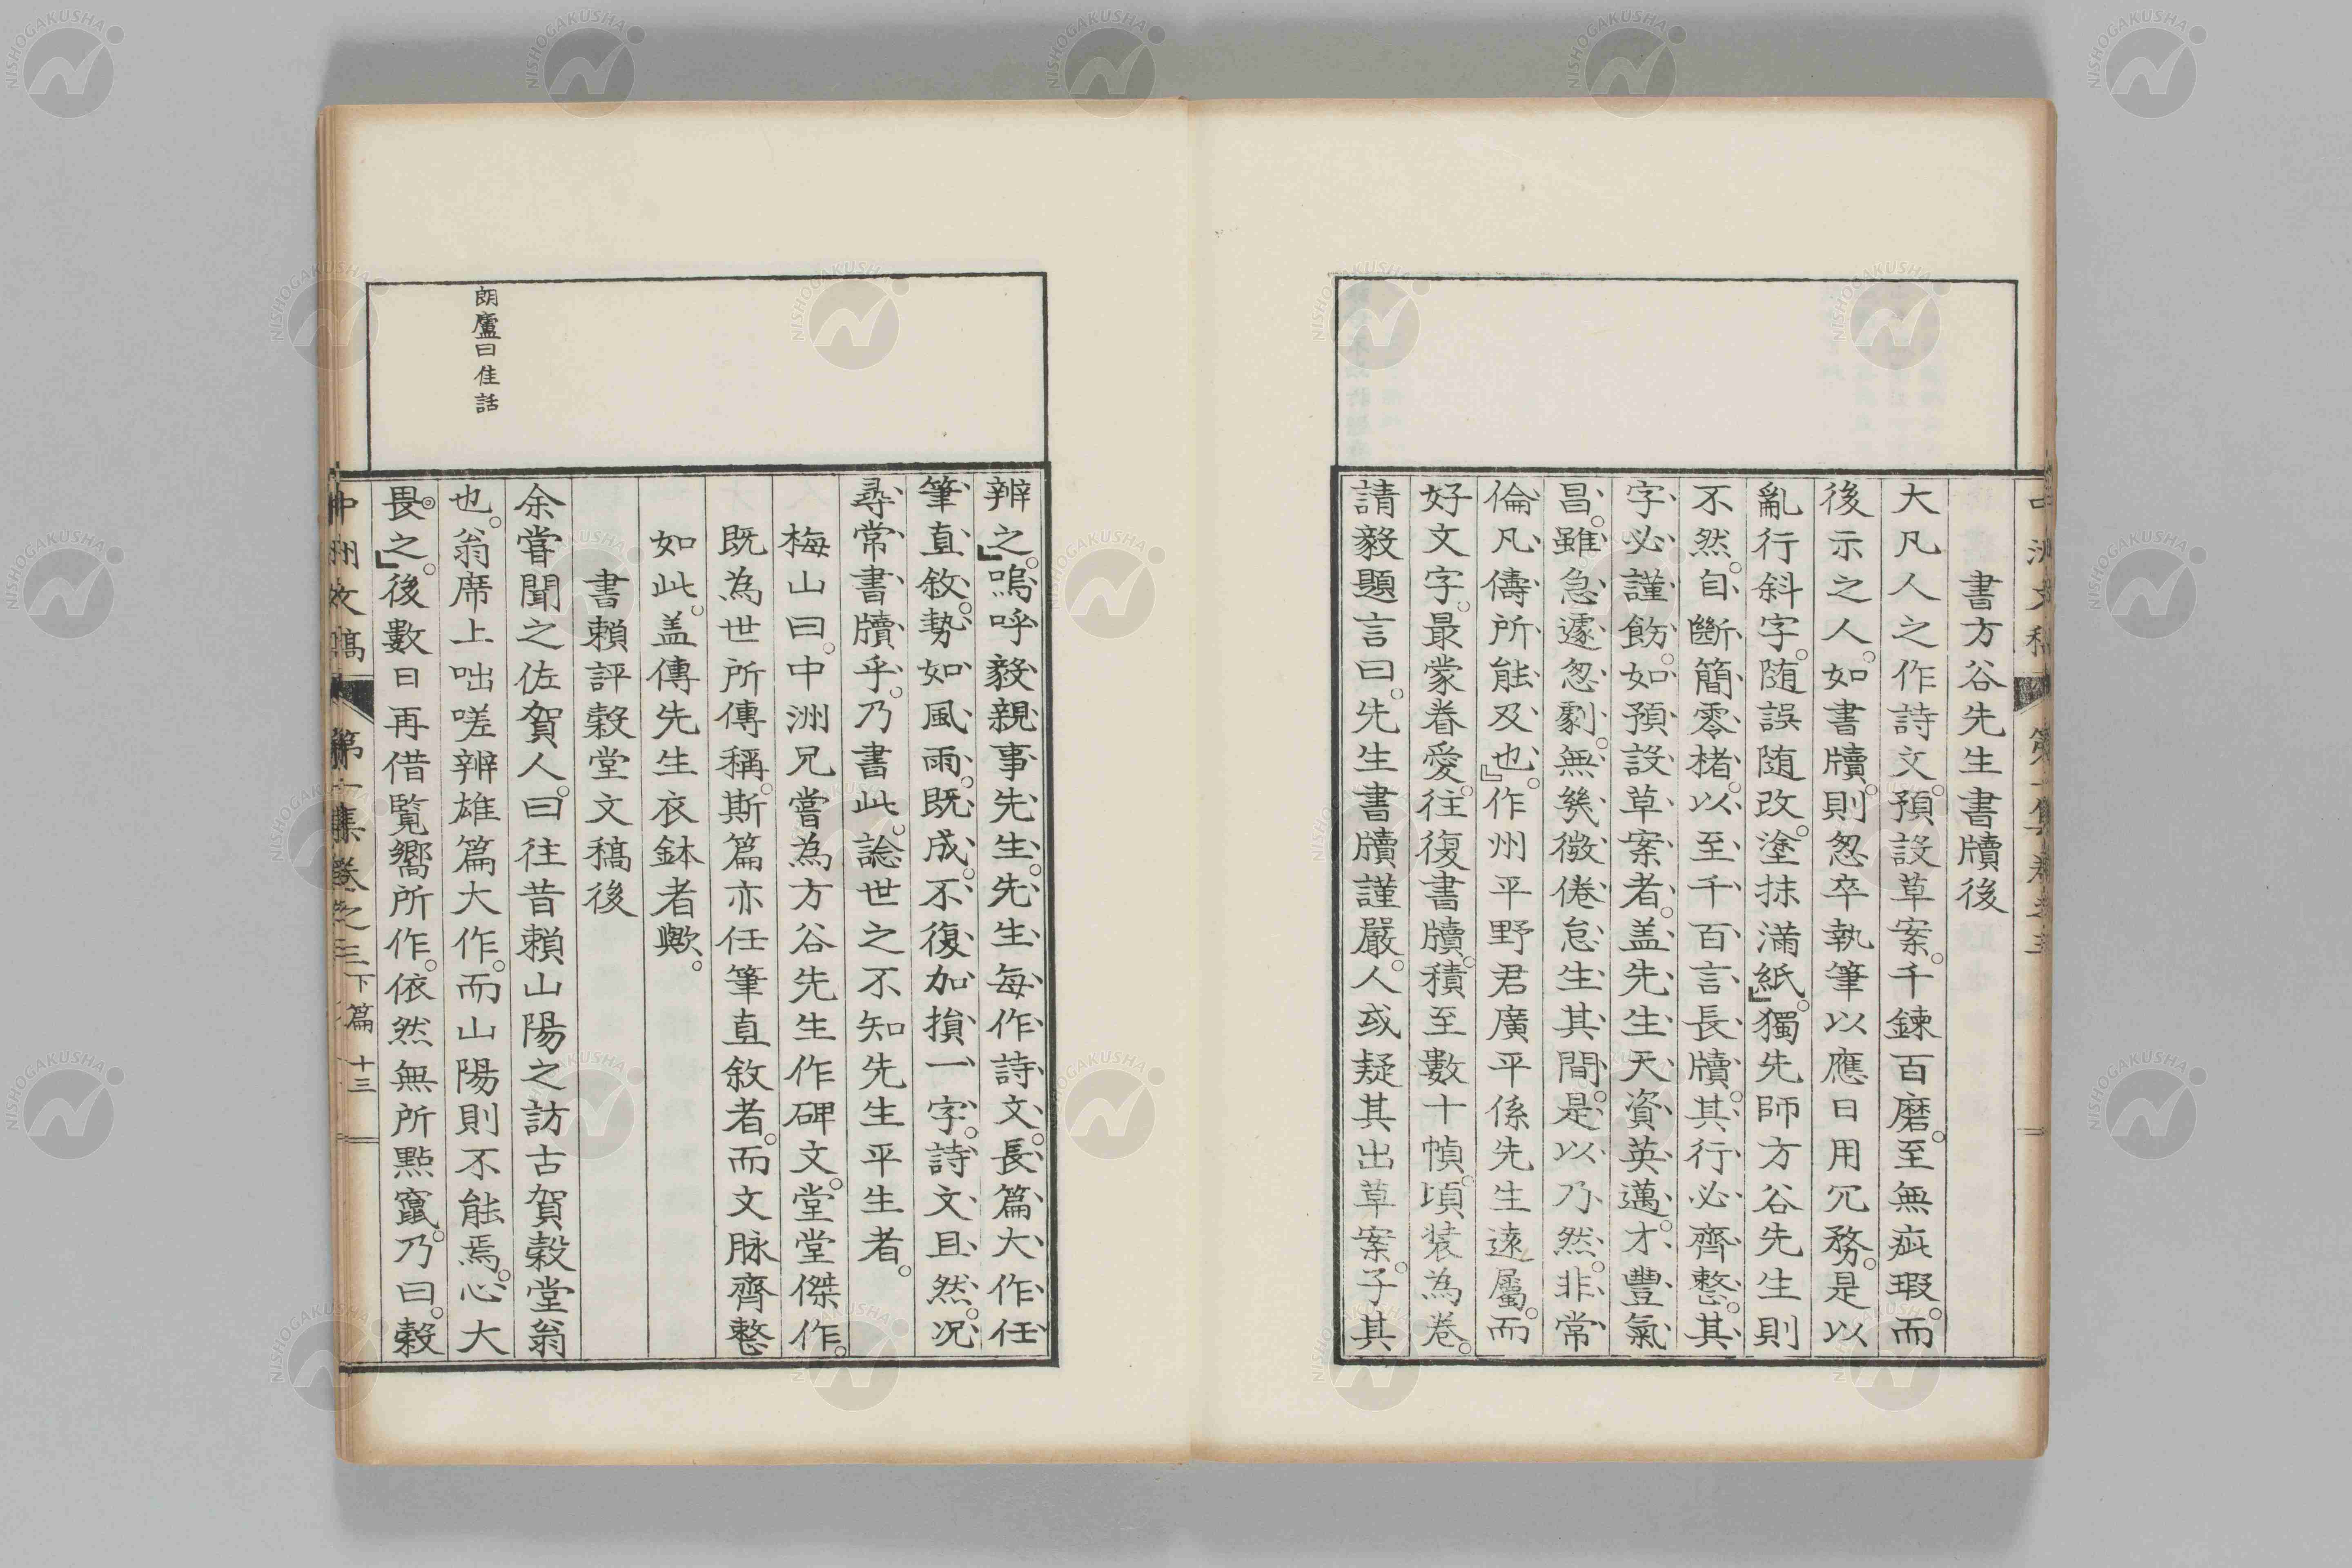 書方谷先生書牘後
大凡人之作詩文。預設草案。千鍊百磨。至無疵瑕。而
後示之人。如書牘。則怱卒執筆以應日用冗務。是以
亂行斜字。随誤随改。塗抹滿紙。』獨先師方谷先生則
不然。自斷簡零楮。以至千百言長牘。其行必齊整。其
字必謹飭。如預設草案者。盖先生天資英邁。才豐氣
昌。雖急遽怱劇。無幾微倦怠生其間。是以乃然。非常
倫凡儔所能及也。』作州平野君廣平係先生遠屬。而
好文字。最蒙眷愛。往復書牘。積至數十幀。頃裝為卷。
請毅題言曰。先生書牘謹嚴。人或疑其出草案。子其
辨之。』嗚呼毅親事先生。先生每作詩文。長篇大作任
筆直敘。勢如風雨。既成。不復加損一字。詩文且然。况
尋常書牘乎。乃書此。諗世之不知先生平生者。
梅山曰。中洲兄嘗為方谷先生作碑文。堂堂傑作。
既為世所傳稱。斯篇亦任筆直敘者。而文脉齊整
如此。盖傳先生衣鉢者歟。
書賴評穀堂文稿後
余嘗聞之佐賀人。曰往昔賴山陽之訪古賀穀堂翁
也。翁席上咄嗟辨雄篇大作。而山陽則不能焉。心大
畏之。』後數日再借覧嚮所作。依然無所點竄。乃曰。穀
朗廬曰佳話
中洲文稿 第一集卷之三下篇 十三